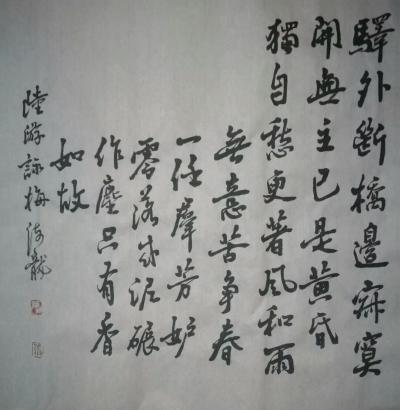 驛外斷橋邊寂寞
開無主已是黃昏
獨自愁更著風和雨
無意苦爭春
一任羣芳妒
零落成泥碾
作塵只有香
如故
陸游詠梅海龍